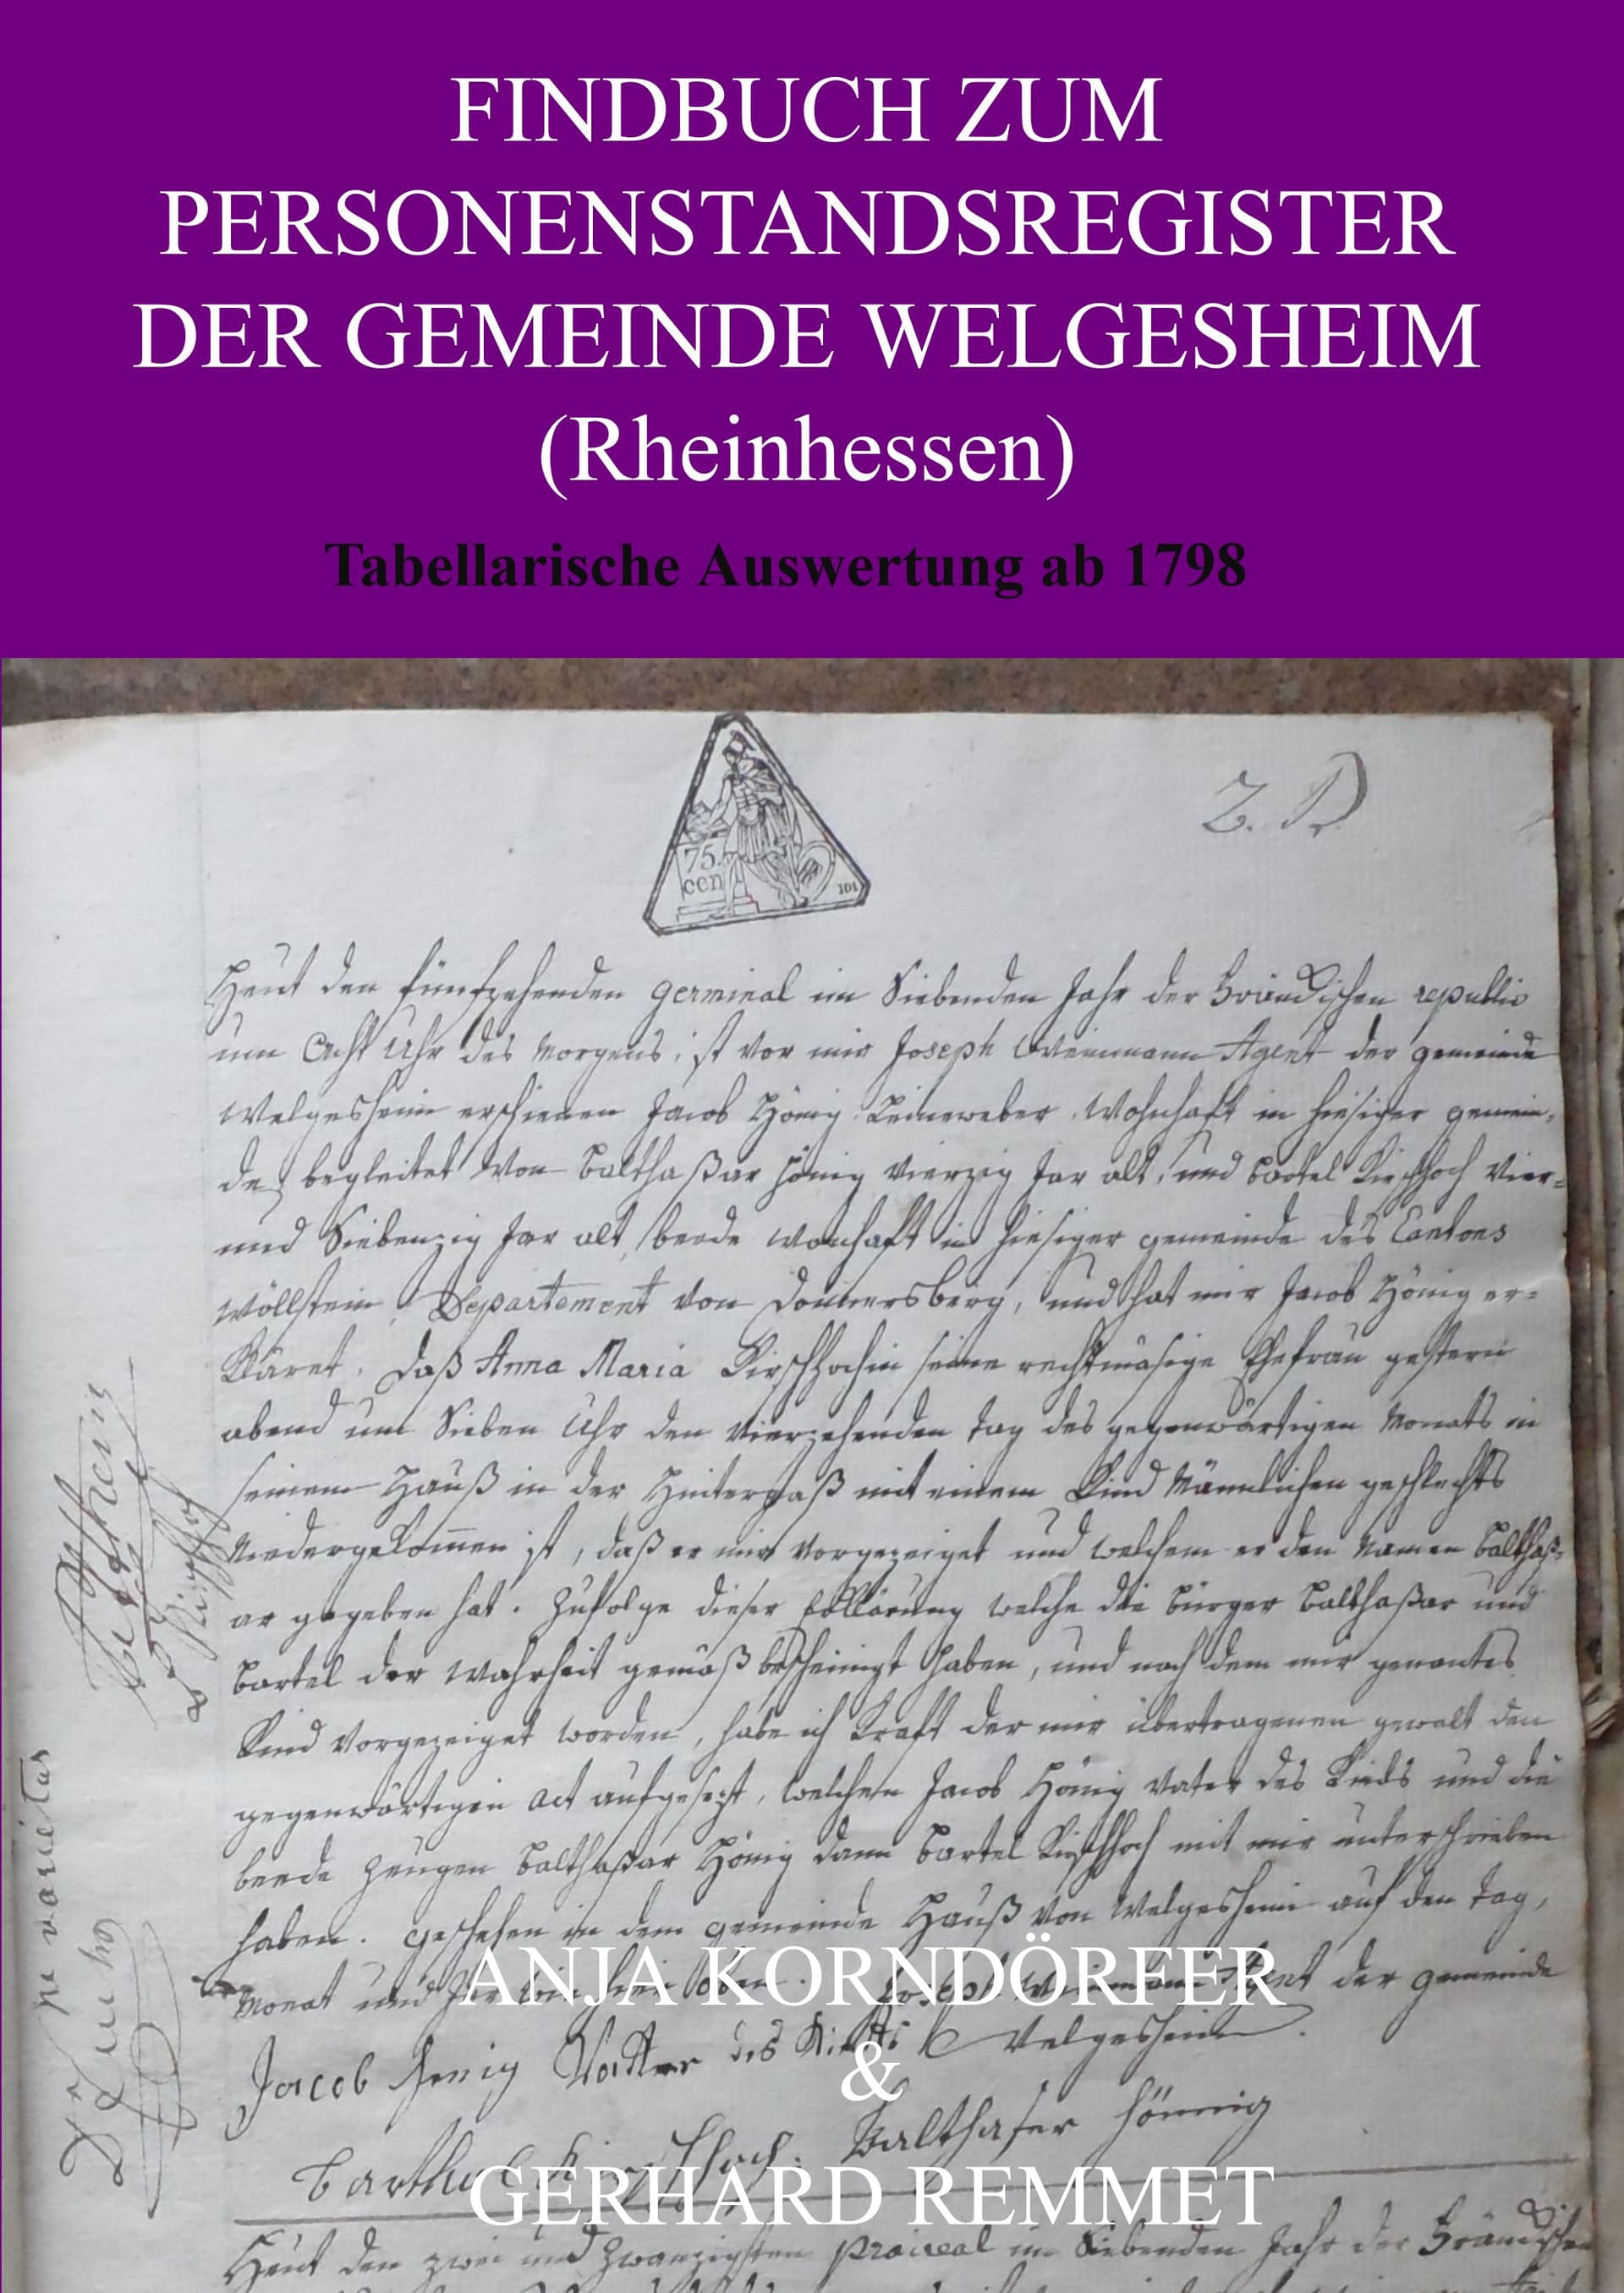 FINDBUCH ZUM
PERSONENSTANDSREGISTER
DER GEMEINDE WELGESHEIM
(Rheinhessen)
Tabellarische Auswertung ab 1798
75.
cen
101
2.
Heut den fünfzehenden germinal im Siebenden Jahr der Fränckischen republic
um Acht Uhr des Morgens, ist vor mir Joseph Weinmann Agent der gemeinde
Welgesheim erschienen Jacob Hönig Leineweber, Wohnhaft in hiesiger gemein-
de, begleitet Von Balthaßar Hönig Vierzig Jar alt, und Bartel Kirschhoch Vier-
und Siebenzig Jar alt, beede wonhaft in hiesiger gemeinde des Cantons
Wöllstein, Departement von Donnersberg, und hat mir Jacob Hönig er-
kläret, daß Anna Maria Kirschhochin seine rechtmäsige Ehefrau gestern
abend um Sieben Uhr den Vierzehenden tag des gegenwärtigen Monats in
seinem Hauß in der Hintergaß mit einem Kind Männlichen geschlechts
Niedergekom̅en ist, daß er mir Vorgezeiget und welchem er den Namen Balthaß-
ar gegeben hat. Zufolge dieser Erklärung welche die Bürger Balthaßar und
Bartel der Wahrheit gemäß bescheinigt haben, und nach dem mir genantes
Kind Vorgezeiget worden, habe ich Kraft der mir übertragenen gewalt den
gegenwärtigen act aufgesezt, welchen Jacob Hönig Vater des Kinds und die
beede Zeugen Balthaßar Hönig dann Bartel Kirschhoch mit mir unterschrieben
haben. geschehen in dem gemeinde Hauß Von Welgesheim auf den tag,
Monat und Jar wie hier oben. Joseph Weinmann Agent der gemeinde
Welgesheim.
Jacob Henig Vatter des Kinds
Balthaser Hönnig
ne varietur
ANJA KORNDÖRFER
&
GERHARD REMMET
Heut den zwei und zwanzigsten praireal im Siebenden Jahr der